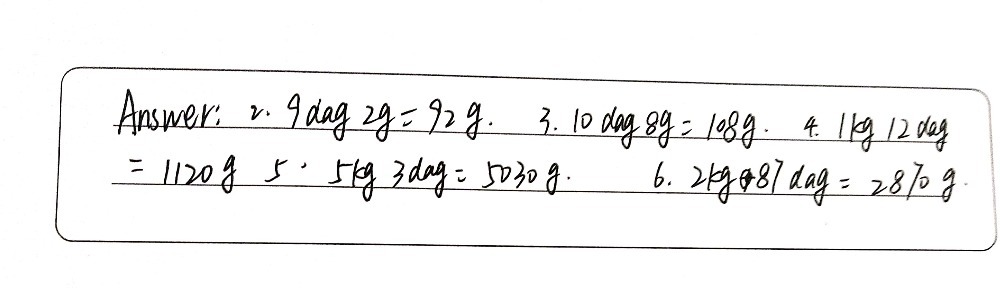 Answer: 2. 9 dag 2g = 92 g. 3. 10 dag 8g = 108g. 4. 1kg 12 dag
= 1120 g 5. 5kg 3 dag = 5030 g. 6. 2kg 87 dag = 2870 g.